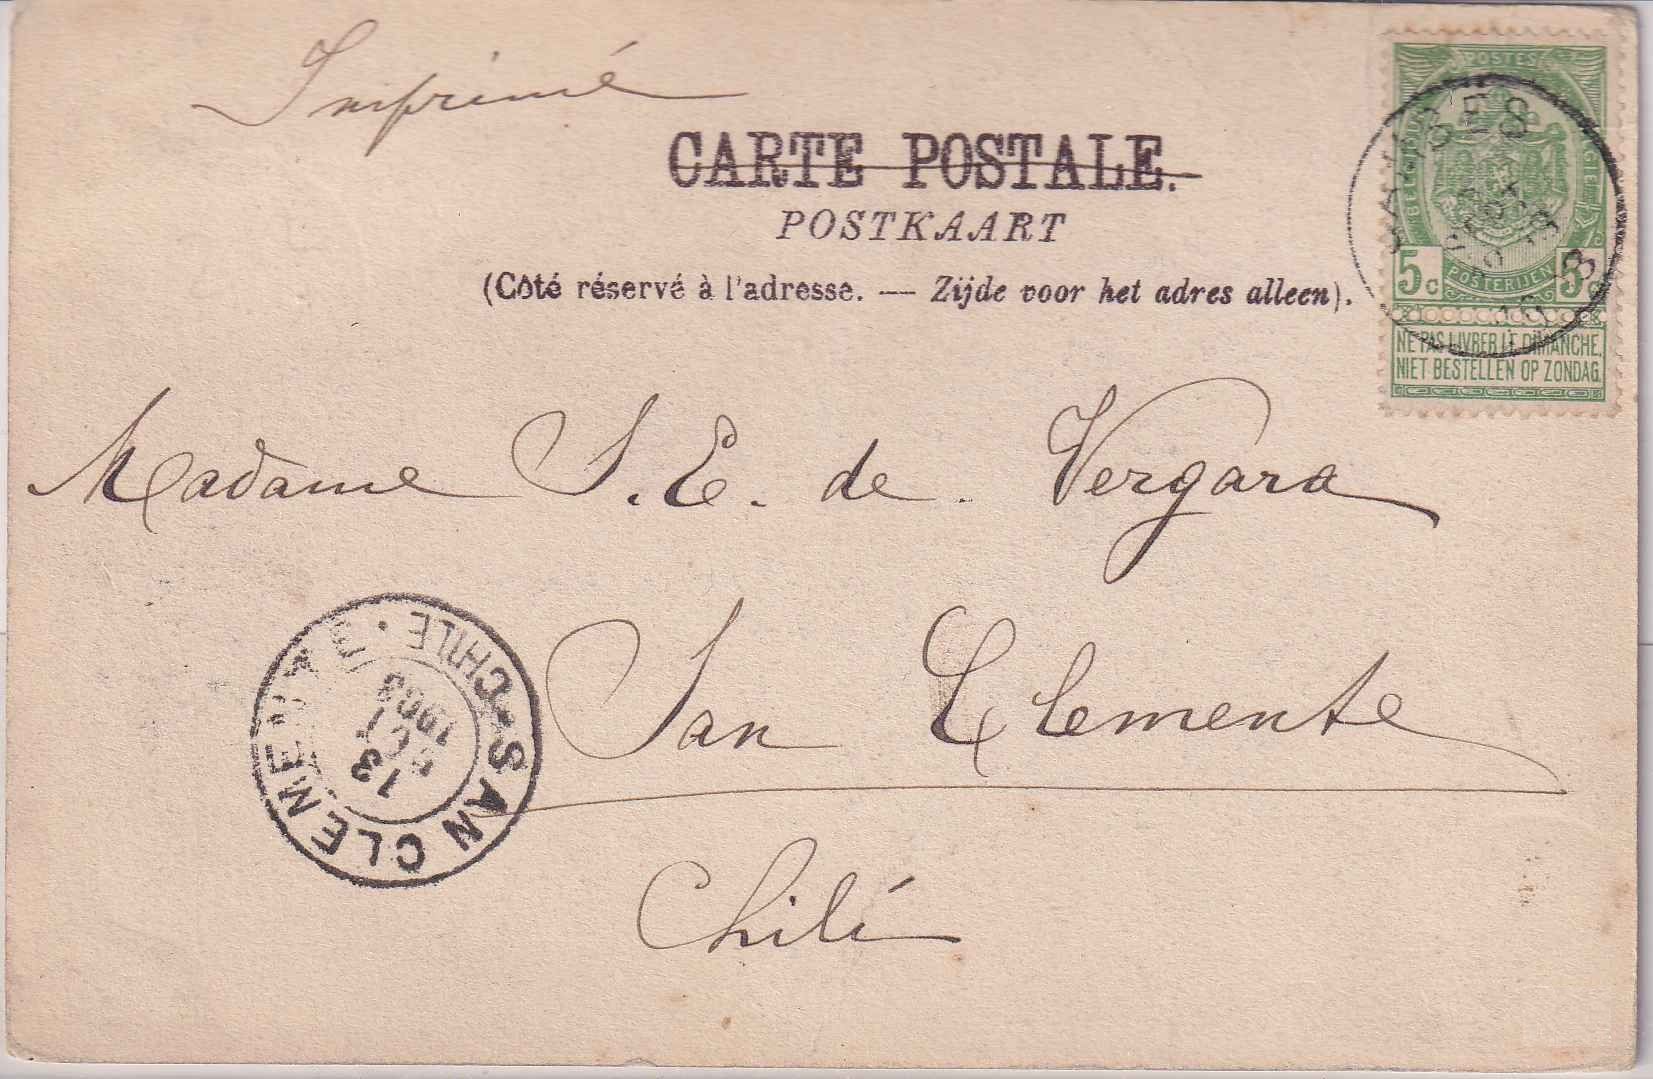 Imprimé
CARTE POSTALE.
POSTKAART
(Côté réservé à l'adresse. — Zijde voor het adres alleen).
POSTES
5c POSTERIJEN 5c
NE PAS LIVRER LE DIMANCHE.
NIET BESTELLEN OP ZONDAG.
Madame S. E. de Vergara
San Clemente
Chilé
SAN CLEMENTE · CHILE
13
OCT
1903